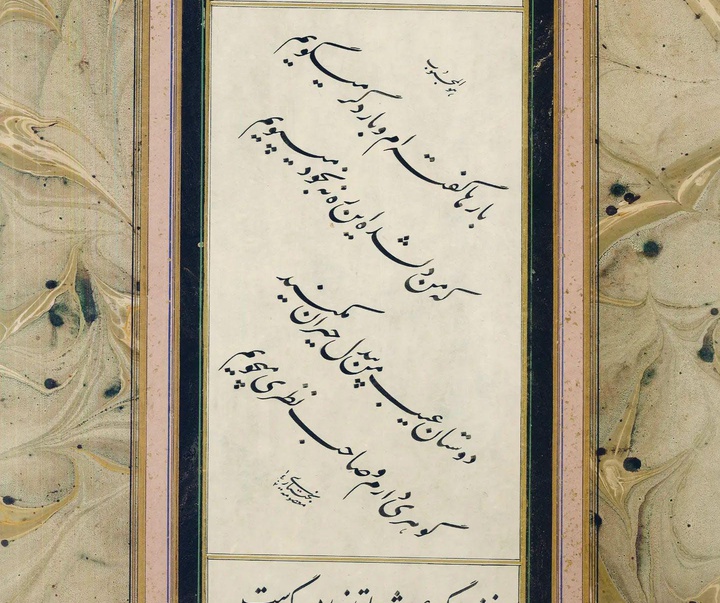 هوالمحبوب
بارها گفته‌ام و بار دگر میگویم
که من دلشده این ره نه بخود میپویم
دوستان عیب من بیدل حیران مکنید
گوهری دارم و صاحب نظری میجویم